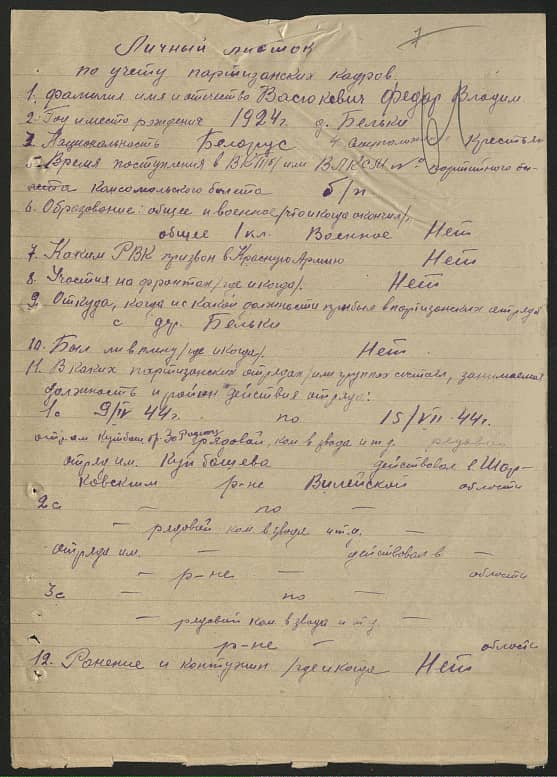 7
Личный листок
по учету партизанских кадров.
1. Фамилия имя и отчество Васюкевич Федор Владим.
2. Год и место рождения 1924г. д. Бельки
3. Национальность Белорус 4. Крестьян
5. Время поступления в ВКП/б/ или ВЛКСМ № партийного би-
лета Комсомольского билета б/п
6. Образование: общее и военное/что и когда окончил/.
общее 1 кл. Военное Нет
7. Каким РВК призван в Красную Армию Нет
8. Участия на фронтах/где и когда/. Нет
9. Откуда, когда и с какой должности прибыл в партизанских отряды
с дер. Бельки
10. Был ли в плену/где и когда/. Нет.
11. В каких партизанских отрядах/или группах состоял, занимаемая
должность и район действия отряда:
1с 9/IV 44г. по 15/VII-44г.
отряд бр. За Родину рядовой, ком. взвода и т.д. рядовой
отряд им. Куйбышева действовал в Шар-
ковским р-не Вилейской области
2с — по —
— рядовой ком. взвода и т.д. —
отряда им. — действовал в —
— р-не — области
3с — по —
— рядовой ком. взвода и т.д. —
р-не области
12. Ранение и контузии /где и когда Нет